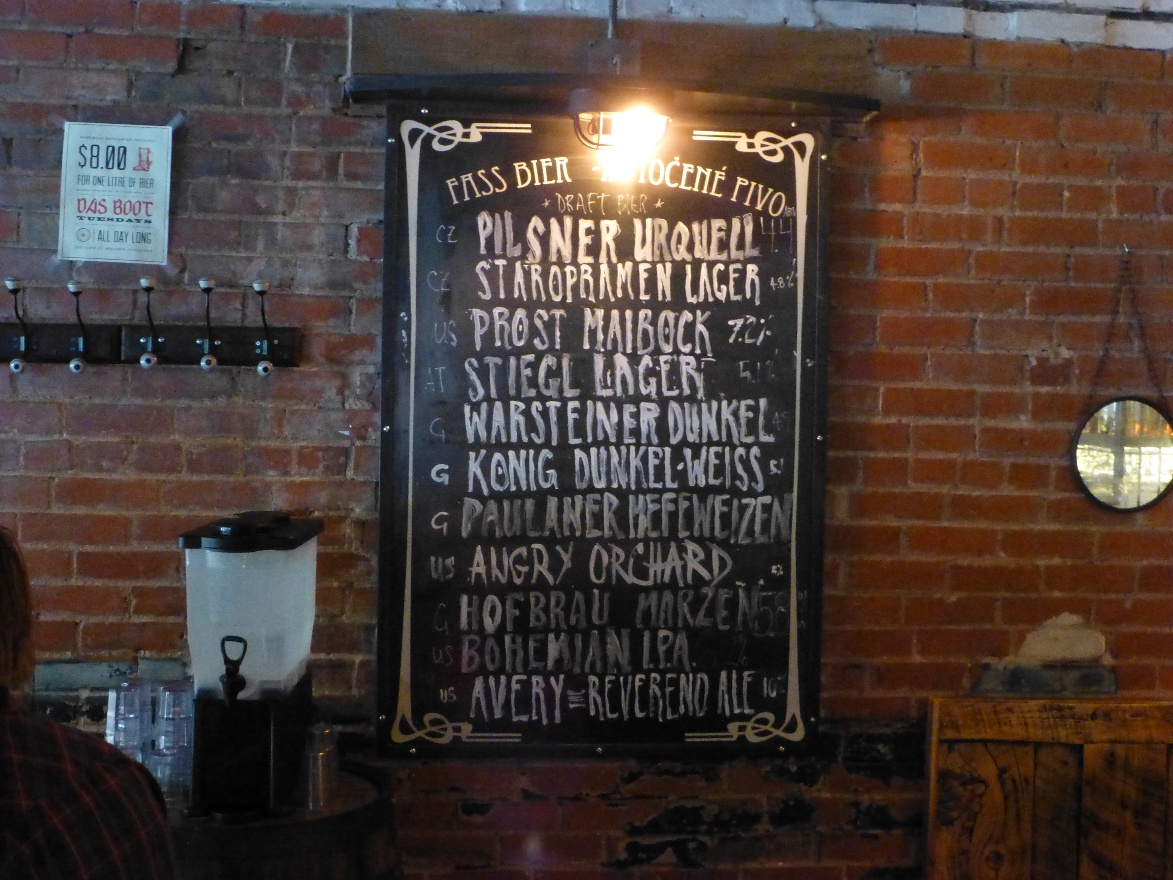 $8.00
FOR ONE LITRE OF BIER
DAS BOOT
TUESDAYS
ALL DAY LONG
FASS BIER TOČENÉ PIVO
* DRAFT BIER *
CZ PILSNER URQUELL 4.4
CZ STAROPRAMEN LAGER 4.8%
US PROST MAIBOCK 7.2%
AT STIEGL LAGER
G WARSTEINER DUNKEL
G KÖNIG DUNKEL-WEISS 5.1
G PAULANER HEFEWEIZEN
US ANGRY ORCHARD
G HOFBRAU MARZEN 5.8
US BOHEMIAN I.P.A.
US AVERY THE REVEREND ALE 10%